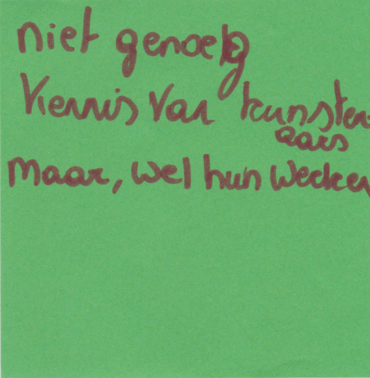 niet genoeg
Kennis van kunsten
aars
maar, wel hun wecken